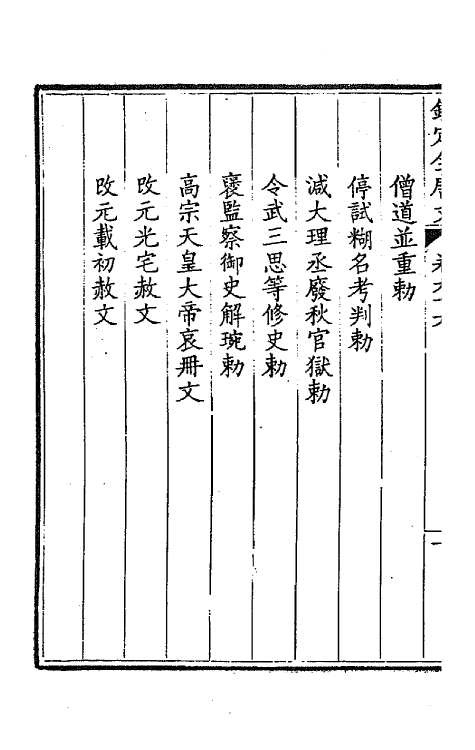 欽定全唐文 卷九十六 一
僧道並重勅
停試糊名考判勅
減大理丞廢秋官獄勅
令武三思等修史勅
褒監察御史解琬勅
高宗天皇大帝哀冊文
改元光宅赦文
改元載初赦文